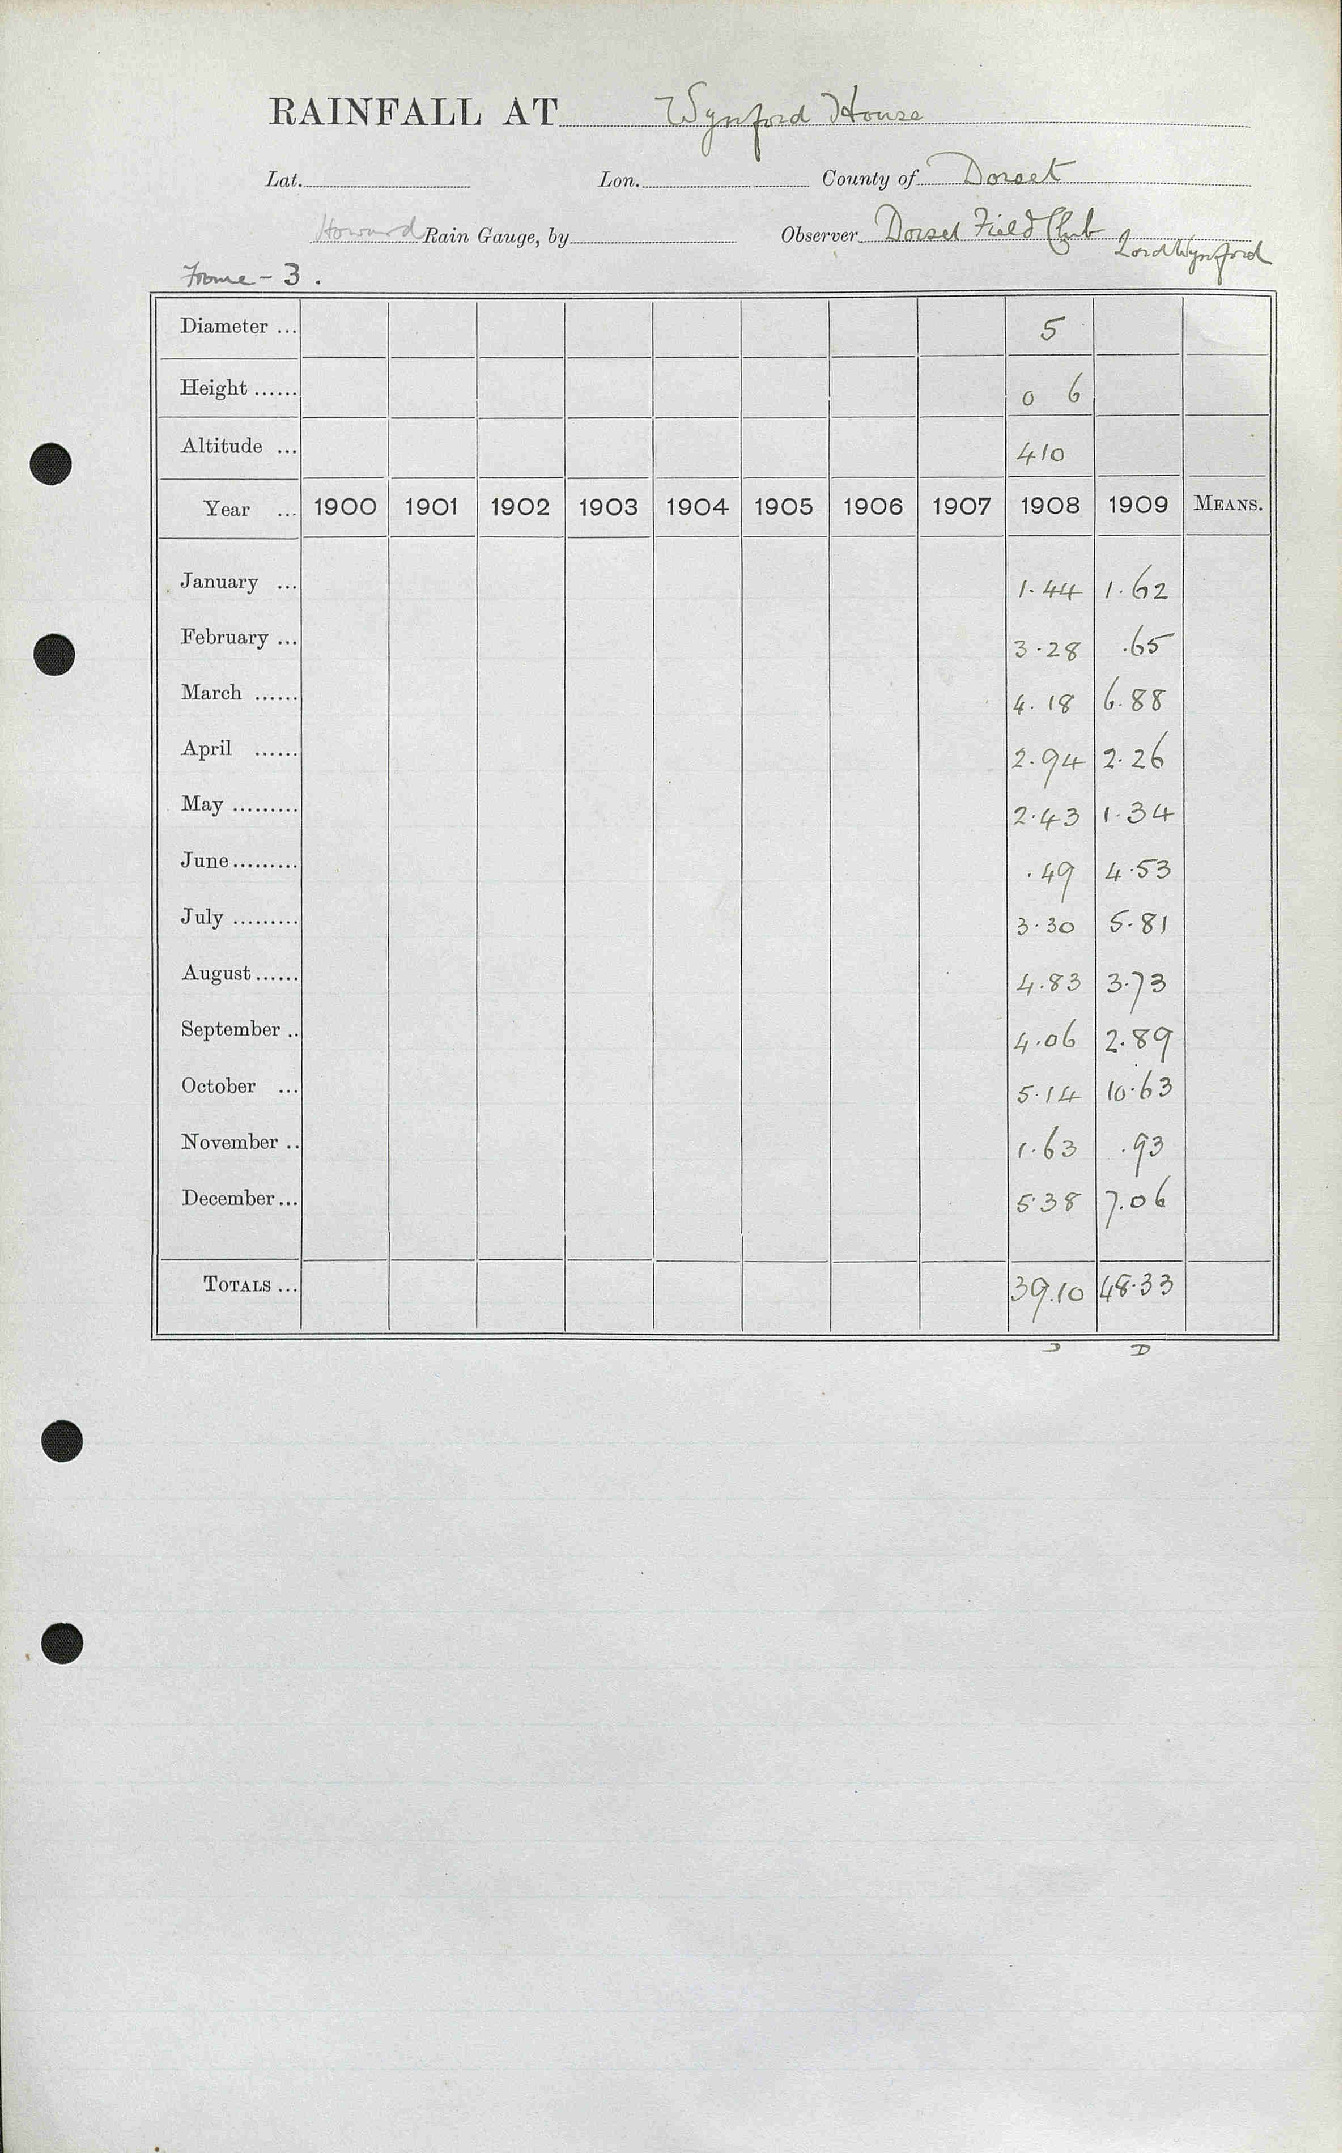 RAINFALL AT Wynford House
Lat. Lon. County of Dorset
Howard Rain Gauge, by Observer Dorset Field Club Lord Wynford
Frome - 3 .
Diameter ... 5
Height ...... 0 6
Altitude ... 410
Year ... 1900 1901 1902 1903 1904 1905 1906 1907 1908 1909 MEANS.
January ... 1.44 1.62
February ... 3.28 .65
March ...... 4.18 6.88
April ...... 2.94 2.26
May ......... 2.43 1.34
June ......... .49 4.53
July ......... 3.30 5.81
August ...... 4.83 3.73
September .. 4.06 2.89
October ... 5.14 10.63
November .. 1.63 .93
December ... 5.38 7.06
TOTALS ... 39.10 48.33
D